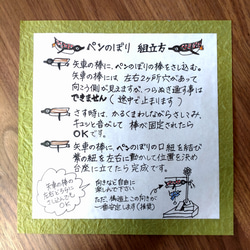 ペンのぼり 組立方
矢車の棒に、ペンのぼりの棒をさし込む。
矢車の棒には 左右2ヶ所穴があって
向こう側が見えますが、つらぬき通す事は
できません（途中で止まります）
さす時は、かるくまわしながらさしこみ、
チョンと音がして 棒が固定されたら
OKです。
矢車の棒に、ペンのぼりの口紐を結び
紫の紐を左右に動かして位置を決め
台座に立てたら完成です。
向きなど自由に
楽しんで下さい
ただ、構造上この向きが
一番安定します（推奨）
矢車の棒の
さしこんでも
OK